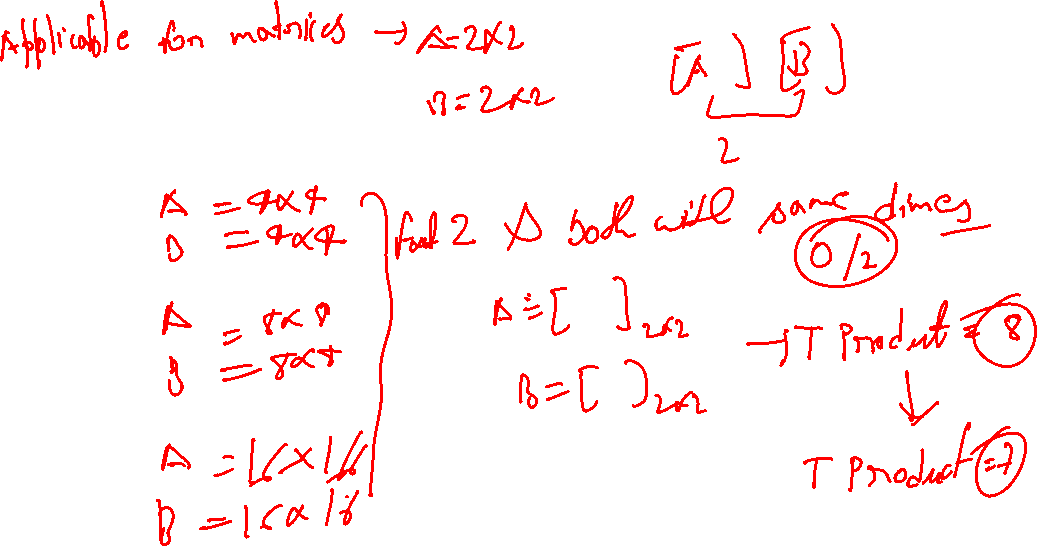 Applicable for matrices → A=2×2
B=2×2
[A] [B]
2
A=4×4
B=4×4
A=8×8
B=8×8
A=16×16
B=16×16
2 A both with same dimes
0/2
A=[ ]2×2
B=[ ]2×2
→ T Product = 8
↓
T Product = 7